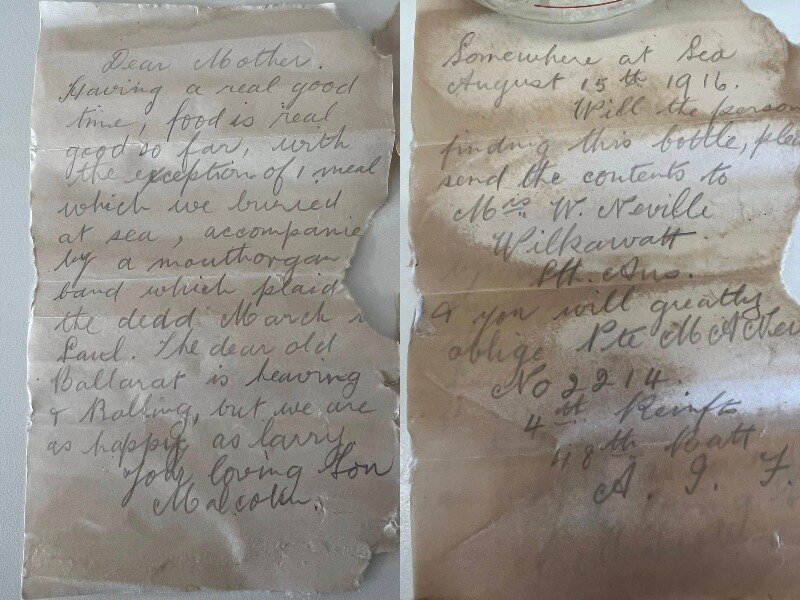 Dear Mother.
Having a real good
time, food is real
good so far, with
the exception of 1 meal
which we buried
at sea, accompanie
by a mouthorgan
band which plaid
the dedd March i
Saul. The dear old
Ballarat is heaving
& Bolling, but we are
as happy as larry.
Your loving Son
Malcolm.
Somewhere at Sea
August 15th 1916.
Will the person
finding this bottle, plea
send the contents to
Mrs W. Neville
Wilkawatt.
Sth. Aus.
& you will greatly
oblige Pte M A Nev
No 2214.
4th Reinft
48th Batt
A. I. F.